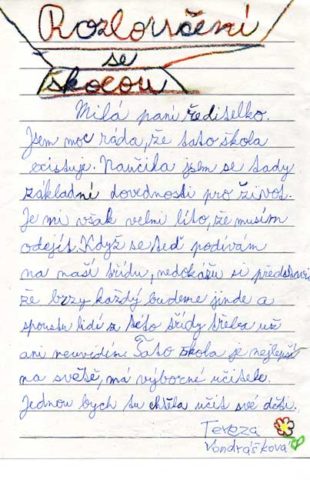 Rozloučení
se
školou
Milá paní ředitelko.
Jsem moc ráda, že tato škola
existuje. Naučila jsem se tady
základní dovednosti pro život.
Je mi však velmi líto, že musím
odejít. Když se teď podívám
na naší třídu, nedokážu si představit
že brzy každý budeme jinde a
spoustu lidí z této třídy třeba už
ani neuvidím. Tato škola je nejlepší
na světě, má výborné učitele.
Jednou bych tu chtěla učit své děti.
Tereza
Vondrášková